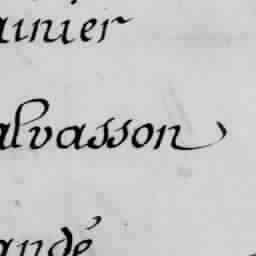 ainier
alvasson
andé